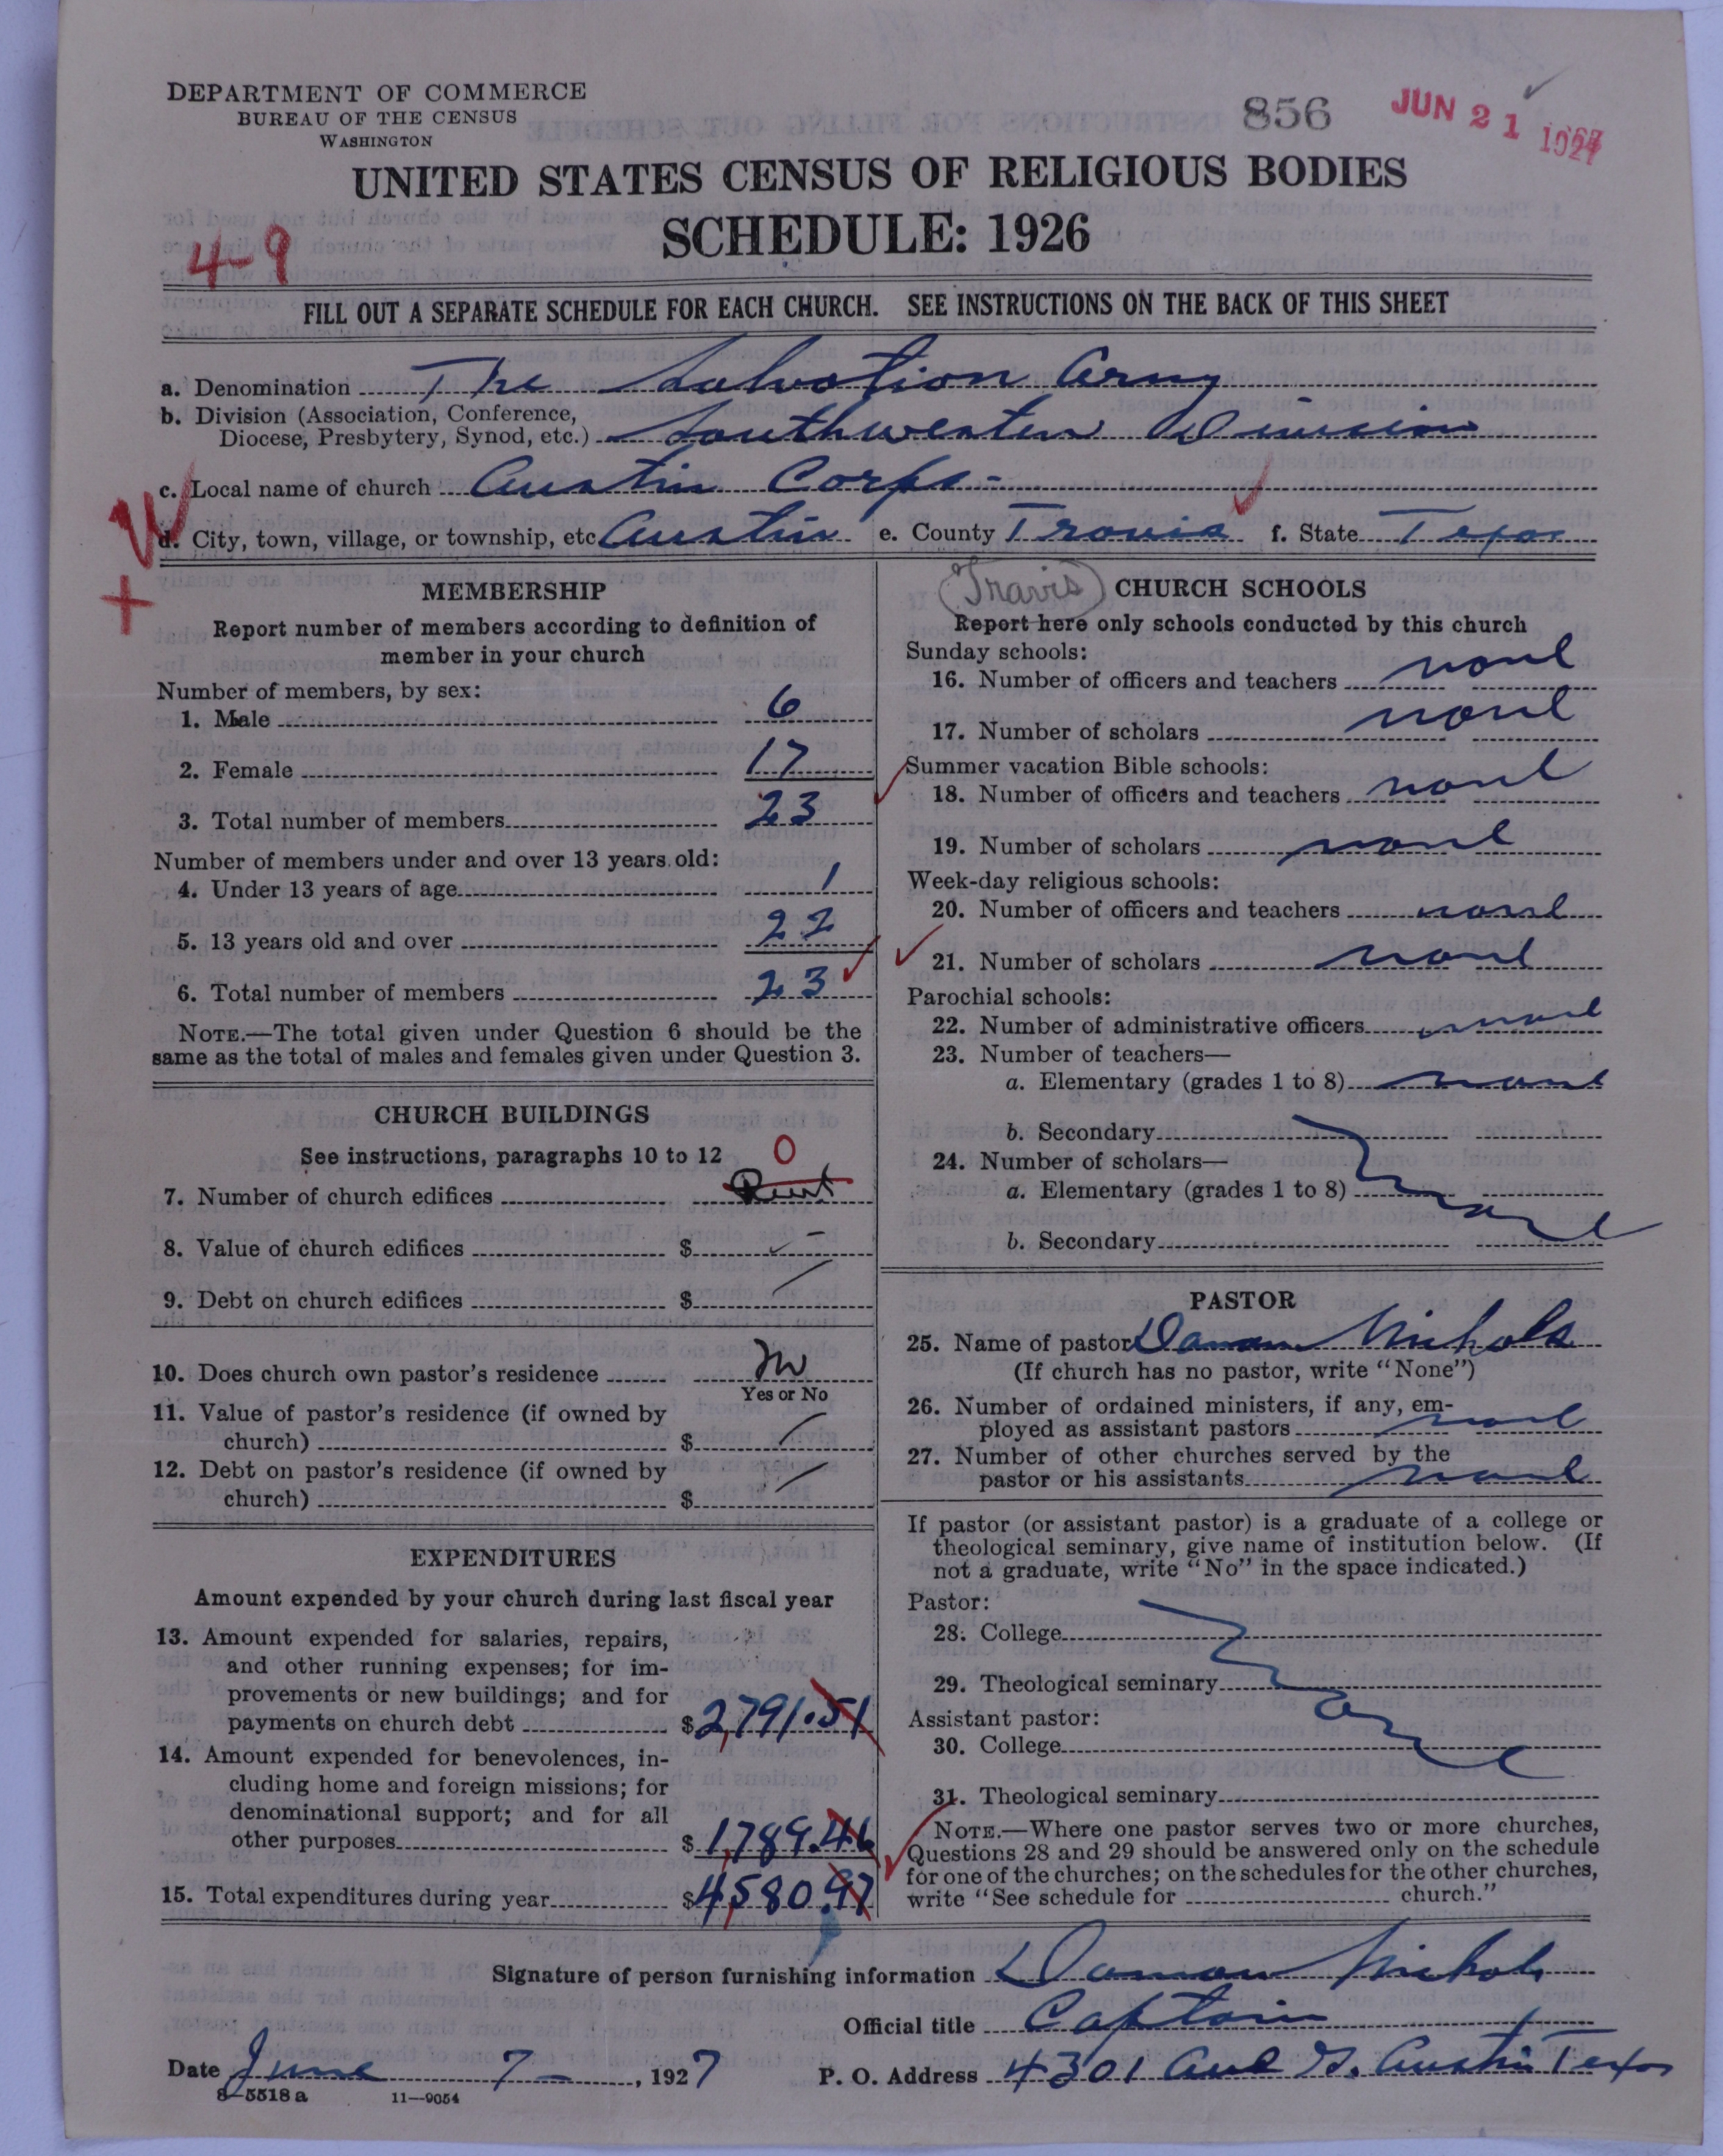 DEPARTMENT OF COMMERCE
BUREAU OF THE CENSUS
WASHINGTON
856
JUN 21 1927
UNITED STATES CENSUS OF RELIGIOUS BODIES
SCHEDULE: 1926
4-9
FILL OUT A SEPARATE SCHEDULE FOR EACH CHURCH. SEE INSTRUCTIONS ON THE BACK OF THIS SHEET
a. Denomination The Salvation Army
b. Division (Association, Conference,
Diocese, Presbytery, Synod, etc.) Southwestern Division
c. Local name of church Austin Corps-
d. City, town, village, or township, etc Austin e. County Travis f. State Texas
MEMBERSHIP
Report number of members according to definition of
member in your church
Number of members, by sex:
1. Male 6
2. Female 17
3. Total number of members 23
Number of members under and over 13 years old:
4. Under 13 years of age 1
5. 13 years old and over 22
6. Total number of members 23
NOTE.—The total given under Question 6 should be the
same as the total of males and females given under Question 3.
CHURCH BUILDINGS
See instructions, paragraphs 10 to 12 0
7. Number of church edifices Rent
8. Value of church edifices $ -
9. Debt on church edifices $
10. Does church own pastor's residence No
Yes or No
11. Value of pastor's residence (if owned by
church) $
12. Debt on pastor's residence (if owned by
church) $
EXPENDITURES
Amount expended by your church during last fiscal year
13. Amount expended for salaries, repairs,
and other running expenses; for im-
provements or new buildings; and for
payments on church debt $2,791.51
14. Amount expended for benevolences, in-
cluding home and foreign missions; for
denominational support; and for all
other purposes $1,789.46
15. Total expenditures during year $4,580.97
(Travis) CHURCH SCHOOLS
Report here only schools conducted by this church
Sunday schools:
16. Number of officers and teachers none
17. Number of scholars none
Summer vacation Bible schools:
18. Number of officers and teachers none
19. Number of scholars none
Week-day religious schools:
20. Number of officers and teachers none
21. Number of scholars none
Parochial schools:
22. Number of administrative officers none
23. Number of teachers—
a. Elementary (grades 1 to 8) none
b. Secondary
24. Number of scholars—
a. Elementary (grades 1 to 8) none
b. Secondary
PASTOR
25. Name of pastor Damon Nichols
(If church has no pastor, write "None")
26. Number of ordained ministers, if any, em-
ployed as assistant pastors none
27. Number of other churches served by the
pastor or his assistants none
If pastor (or assistant pastor) is a graduate of a college or
theological seminary, give name of institution below. (If
not a graduate, write "No" in the space indicated.)
Pastor:
28. College
29. Theological seminary none
Assistant pastor:
30. College
31. Theological seminary
NOTE.—Where one pastor serves two or more churches,
Questions 28 and 29 should be answered only on the schedule
for one of the churches; on the schedules for the other churches,
write "See schedule for church."
Signature of person furnishing information Damon Nichols
Official title Captain
Date June 7 - , 1927 P. O. Address 4301 Ave G. Austin Texas
8-5518 a 11—9054